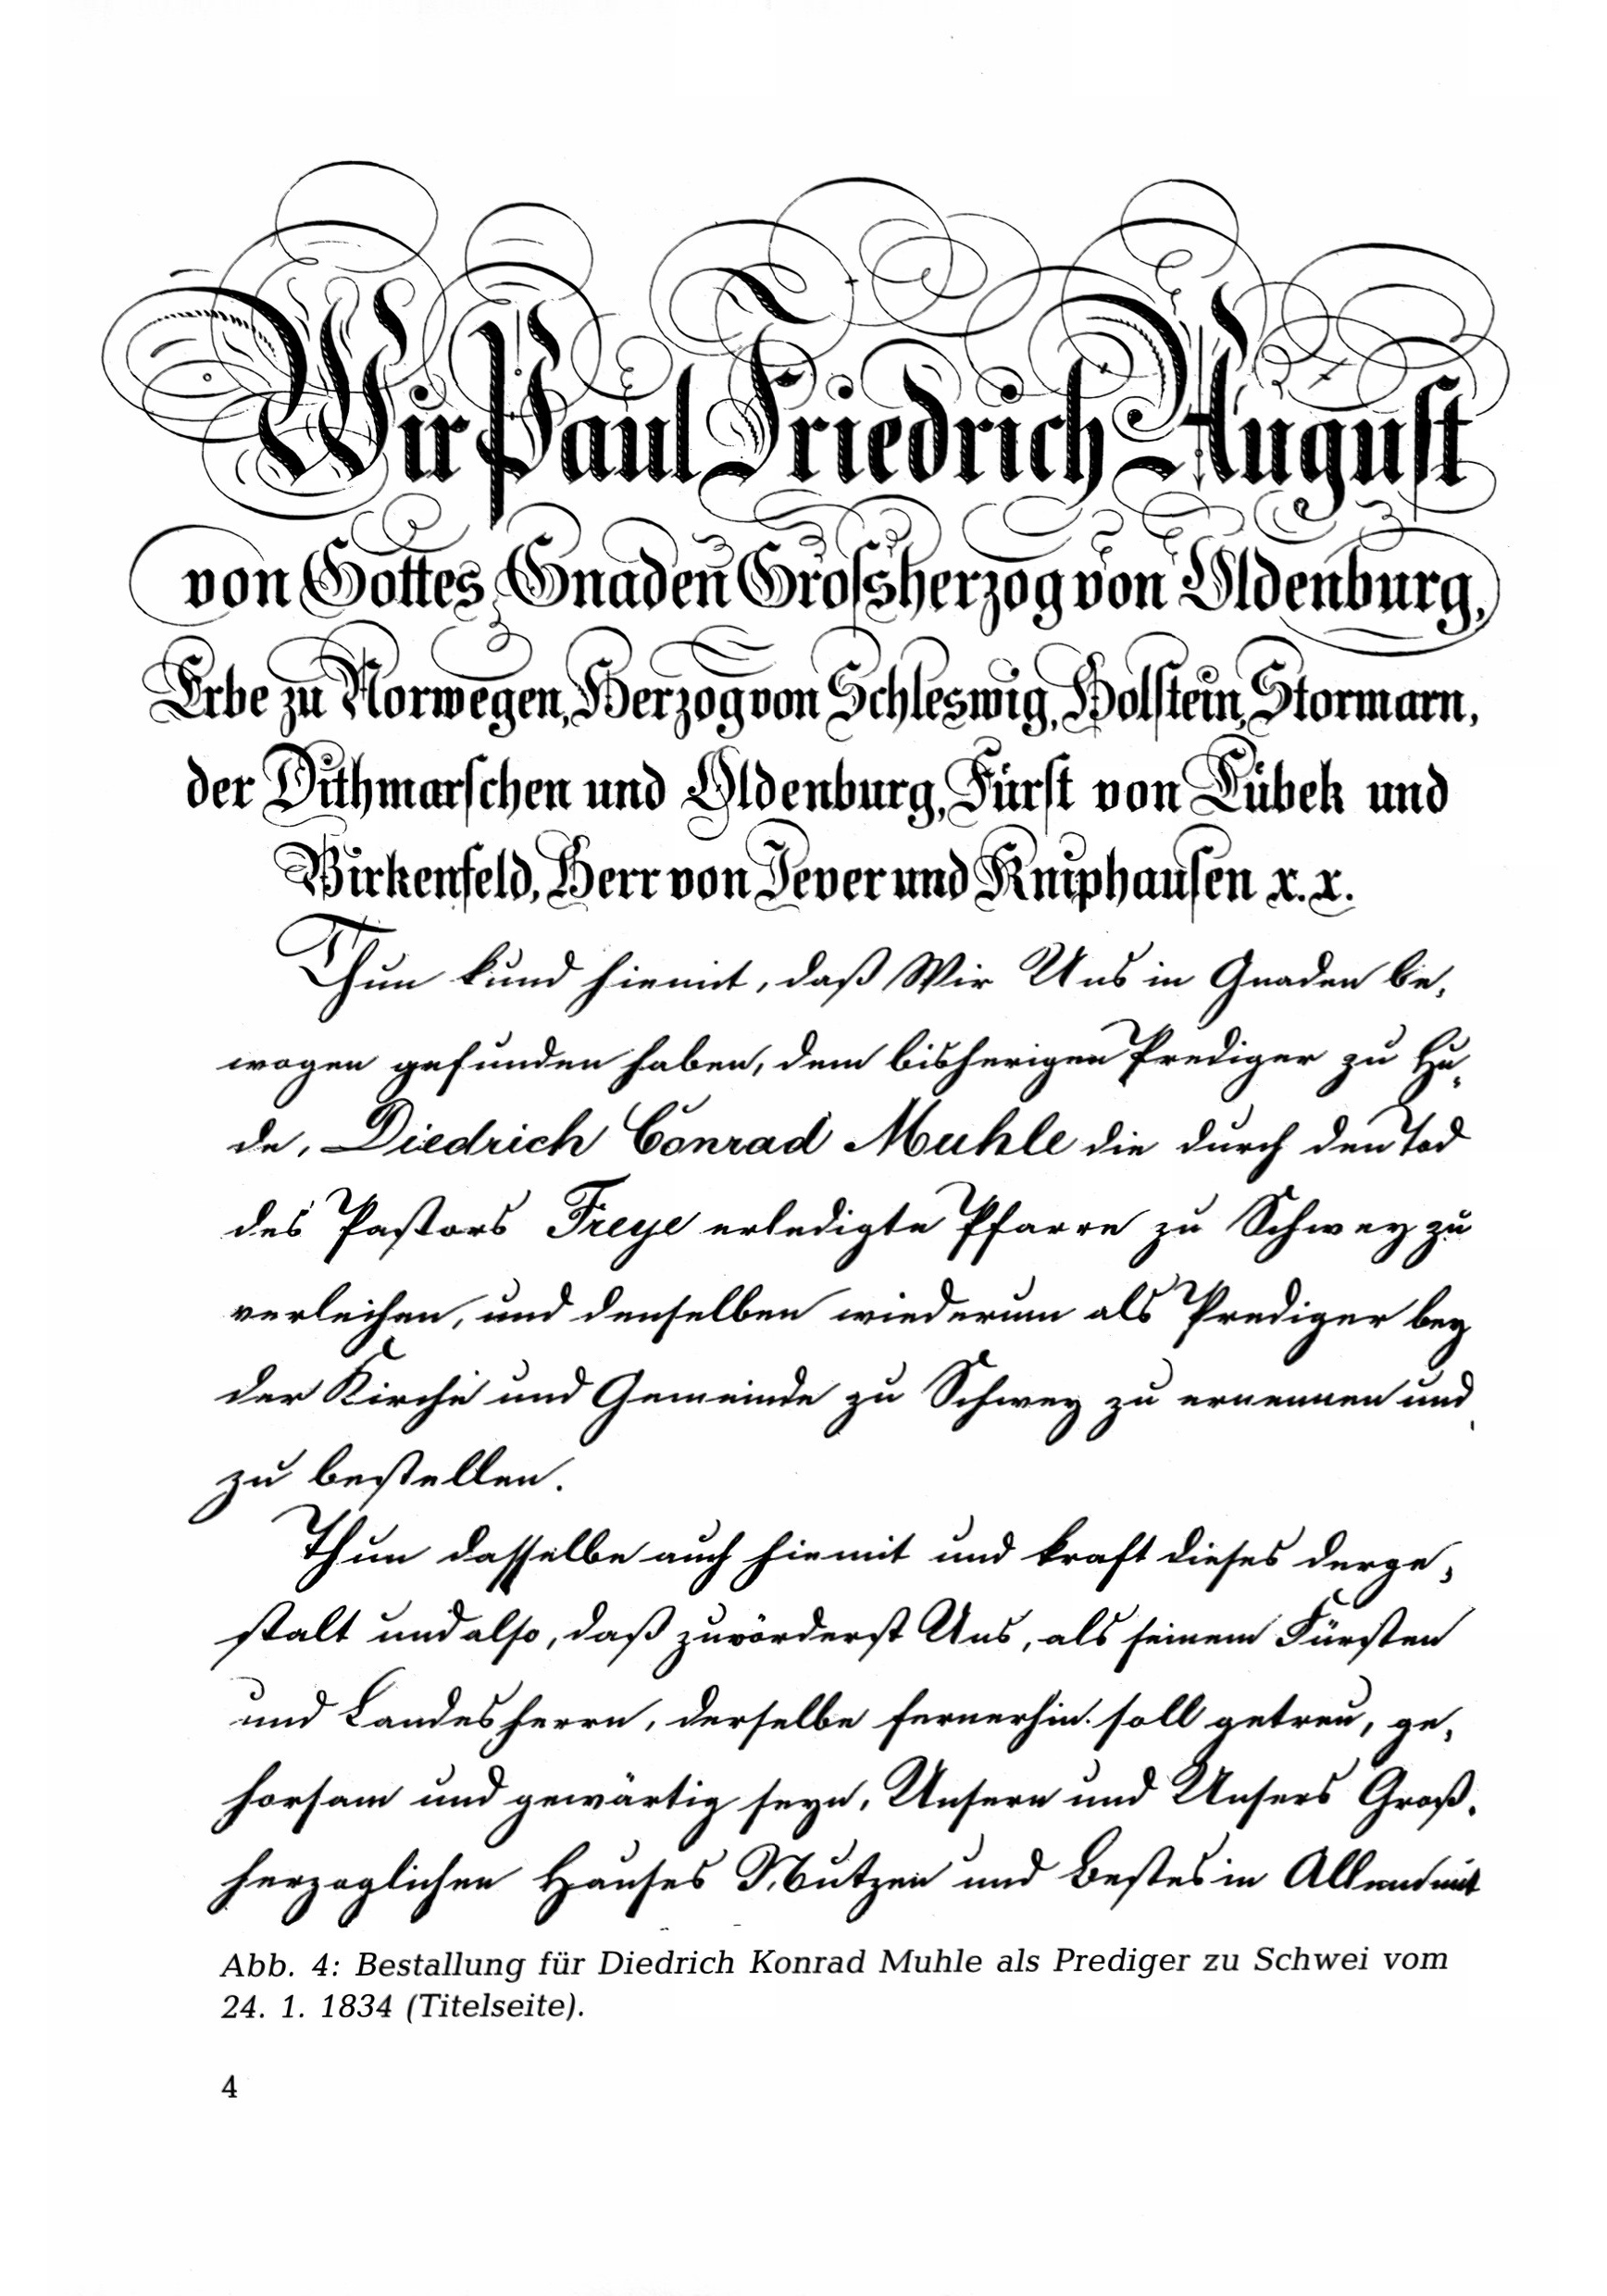 Wir Paul Friedrich August
von Gottes Gnaden Grossherzog von Oldenburg,
Erbe zu Norwegen, Herzog von Schleswig, Holstein, Stormarn,
der Dithmarschen und Oldenburg, Fürst von Lübek und
Birkenfeld, Herr von Jever und Kniphausen x. x.
Thun kund hiemit, daß Wir Uns in Gnaden be-
wogen gefunden haben, dem bisherigen Prediger zu Hu-
de, Diedrich Conrad Muhle die durch den Tod
des Pastors Freye erledigte Pfarre zu Schwey zu
verleihen, und denselben wiederum als Prediger bey
der Kirche und Gemeinde zu Schwey zu ernennen und
zu bestellen.
Thun dasselbe auch hiemit und kraft dieses derge-
stalt und also, daß zuvörderst Uns, als seinem Fürsten
und Landesherrn, derselbe fernerhin soll getreu, ge-
horsam und gewärtig seyn, Unsern und Unsers Groß-
herzoglichen Hauses Nutzen und Bestes in Allem mit
Abb. 4: Bestallung für Diedrich Konrad Muhle als Prediger zu Schwei vom
24. 1. 1834 (Titelseite).
4